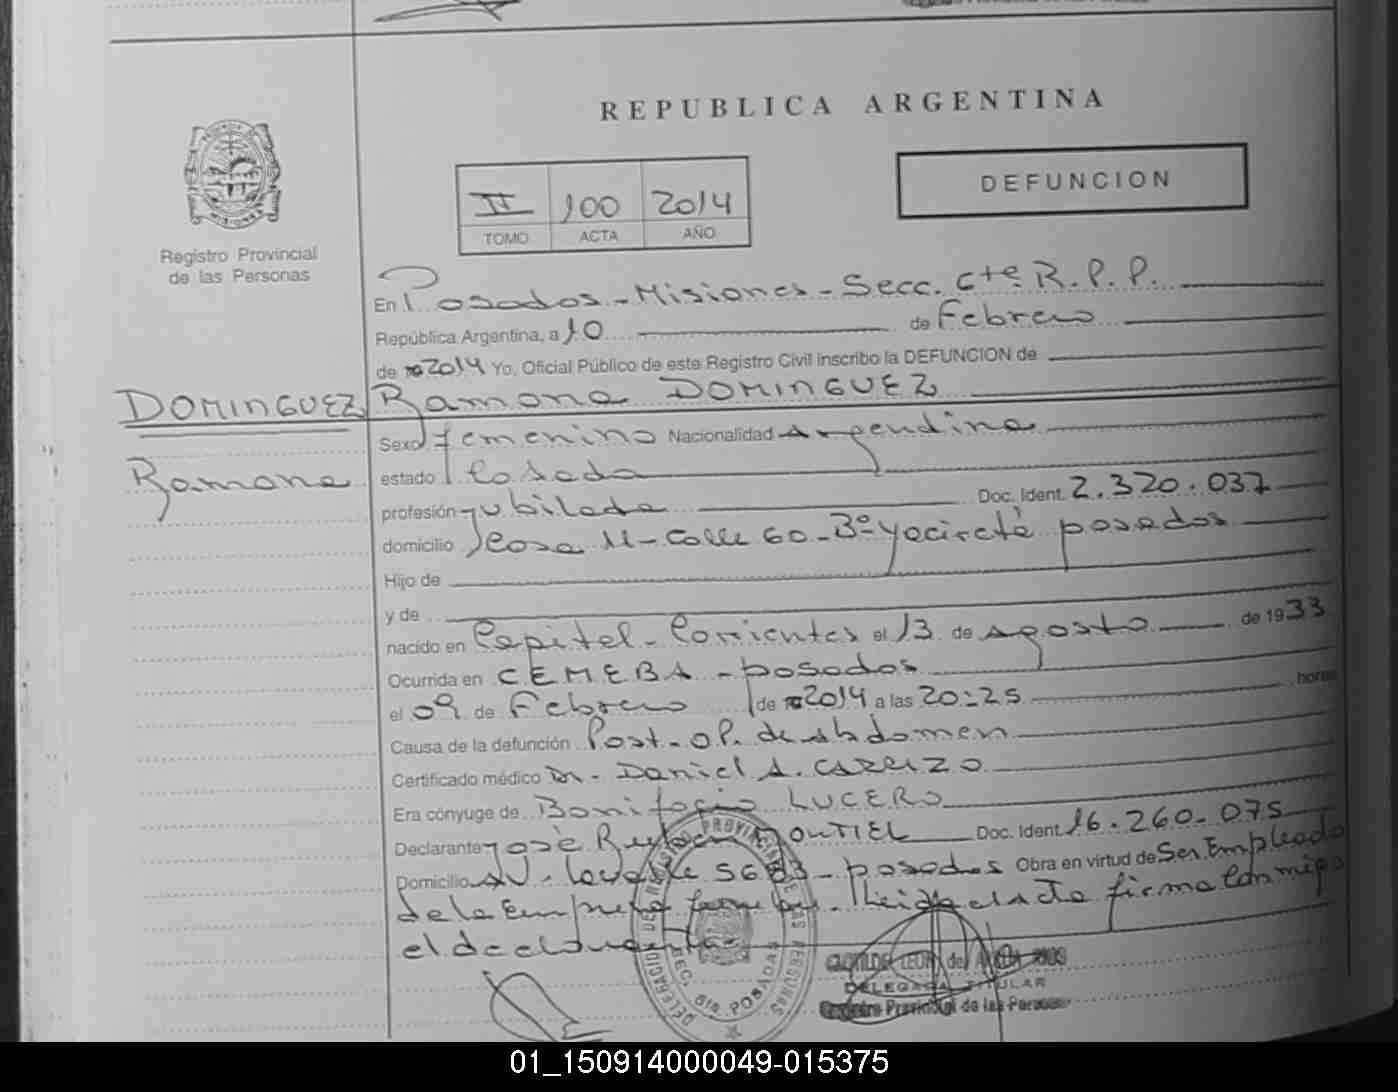 REPUBLICA ARGENTINA
DEFUNCION
II 100 2014
TOMO ACTA AÑO
Registro Provincial
de las Personas
En Posadas - Misiones - Secc. 6ta R.P.P.
República Argentina, a 10 de Febrero
de 2014 Yo, Oficial Público de este Registro Civil inscribo la DEFUNCION de
DOMINGUEZ
Ramona
Ramona DOMINGUEZ
Sexo femenino Nacionalidad Argentina
estado Casada
profesión jubilada Doc. Ident. 2.320.037
domicilio Casa 11 - Calle 60 - Bº Yacireta posadas
Hijo de
y de
nacido en Capital - Corrientes el 13 de Agosto de 1933
Ocurrida en CEMEBA - posadas
el 09 de Febrero de 2014 a las 20:25 horas
Causa de la defunción Post - OP. de abdomen
Certificado médico Dr. Daniel A. CARRIZO
Era cónyuge de Bonifacio LUCERO
Declarante José Ruben MONTIEL Doc. Ident. 16.260.075
Domicilio AV. Lavalle 5683 - posadas Obra en virtud de Ser Empleado
de la Empresa Leida el acta firma conmigo
el declarante
DELEGADA TITULAR
Registro Provincial de las Personas
SEC. 6ta POSADAS
01_150914000049-015375